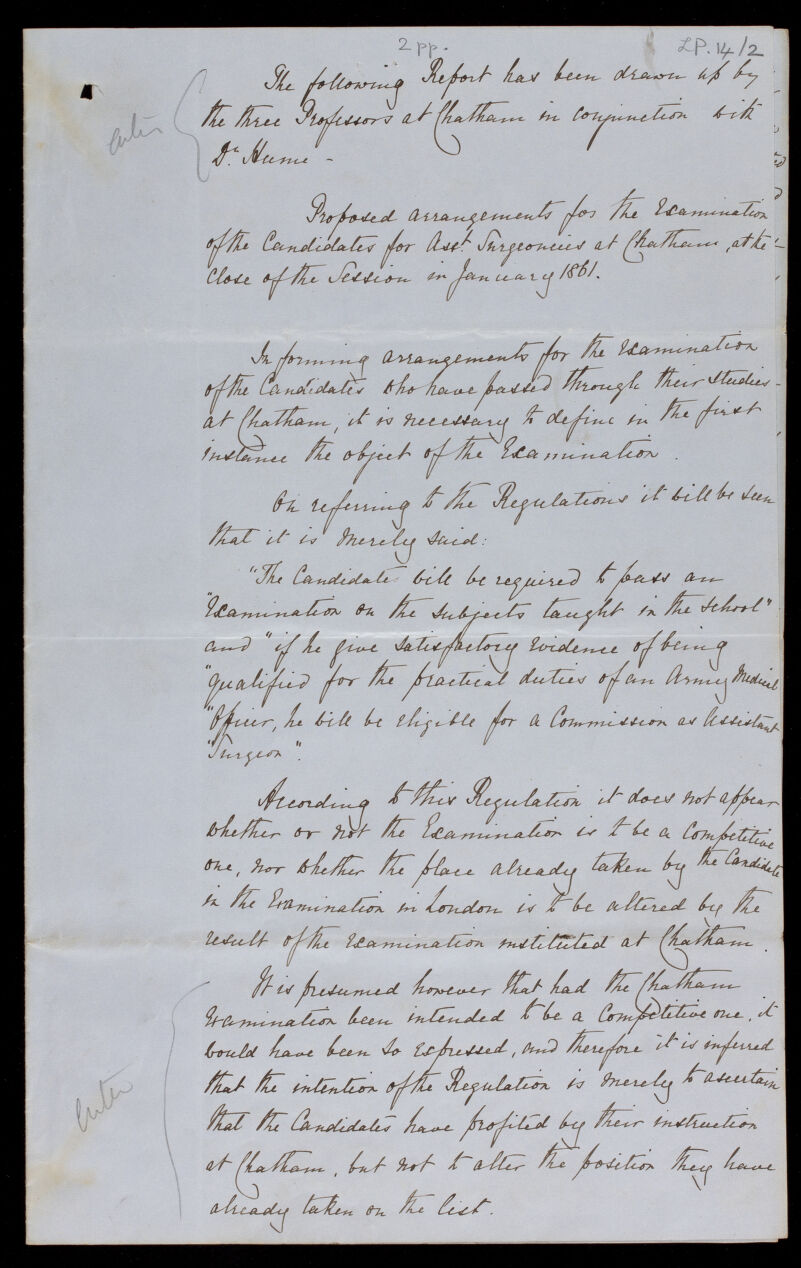 2 pp.
LP. 14/2
The following Report has been drawn up by
enter
the three Professors at Chatham in conjunction with
Dr. Hume -
Proposed arrangements for the Examination
of the Candidates for Asst. Surgeoncies at Chatham, at the
close of the Session in January 1861.
In forming arrangements for the examination
of the Candidates who have passed through their studies
at Chatham, it is necessary to define in the first
instance the object of the Examination.
On referring to the Regulations it will be seen
that it is merely said:
"The Candidate will be required to pass an
"Examination on the subjects taught in the School"
and "if he give satisfactory evidence of being
"qualified for the practical duties of an Army Medical
"Officer, he will be eligible for a Commission as Assistant
"Surgeon".
According to this Regulation it does not appear
whether or not the Examination is to be a Competitive
one, nor whether the place already taken by the Candidate
in the Examination in London is to be altered by the
result of the examination instituted at Chatham.
It is presumed however that had the Chatham
Examination been intended to be a Competitive one, it
would have been so expressed, and therefore it is inferred
that the intention of the Regulation is merely to ascertain
enter
that the Candidates have profited by their instruction
at Chatham, but not to alter the position they have
already taken on the list.